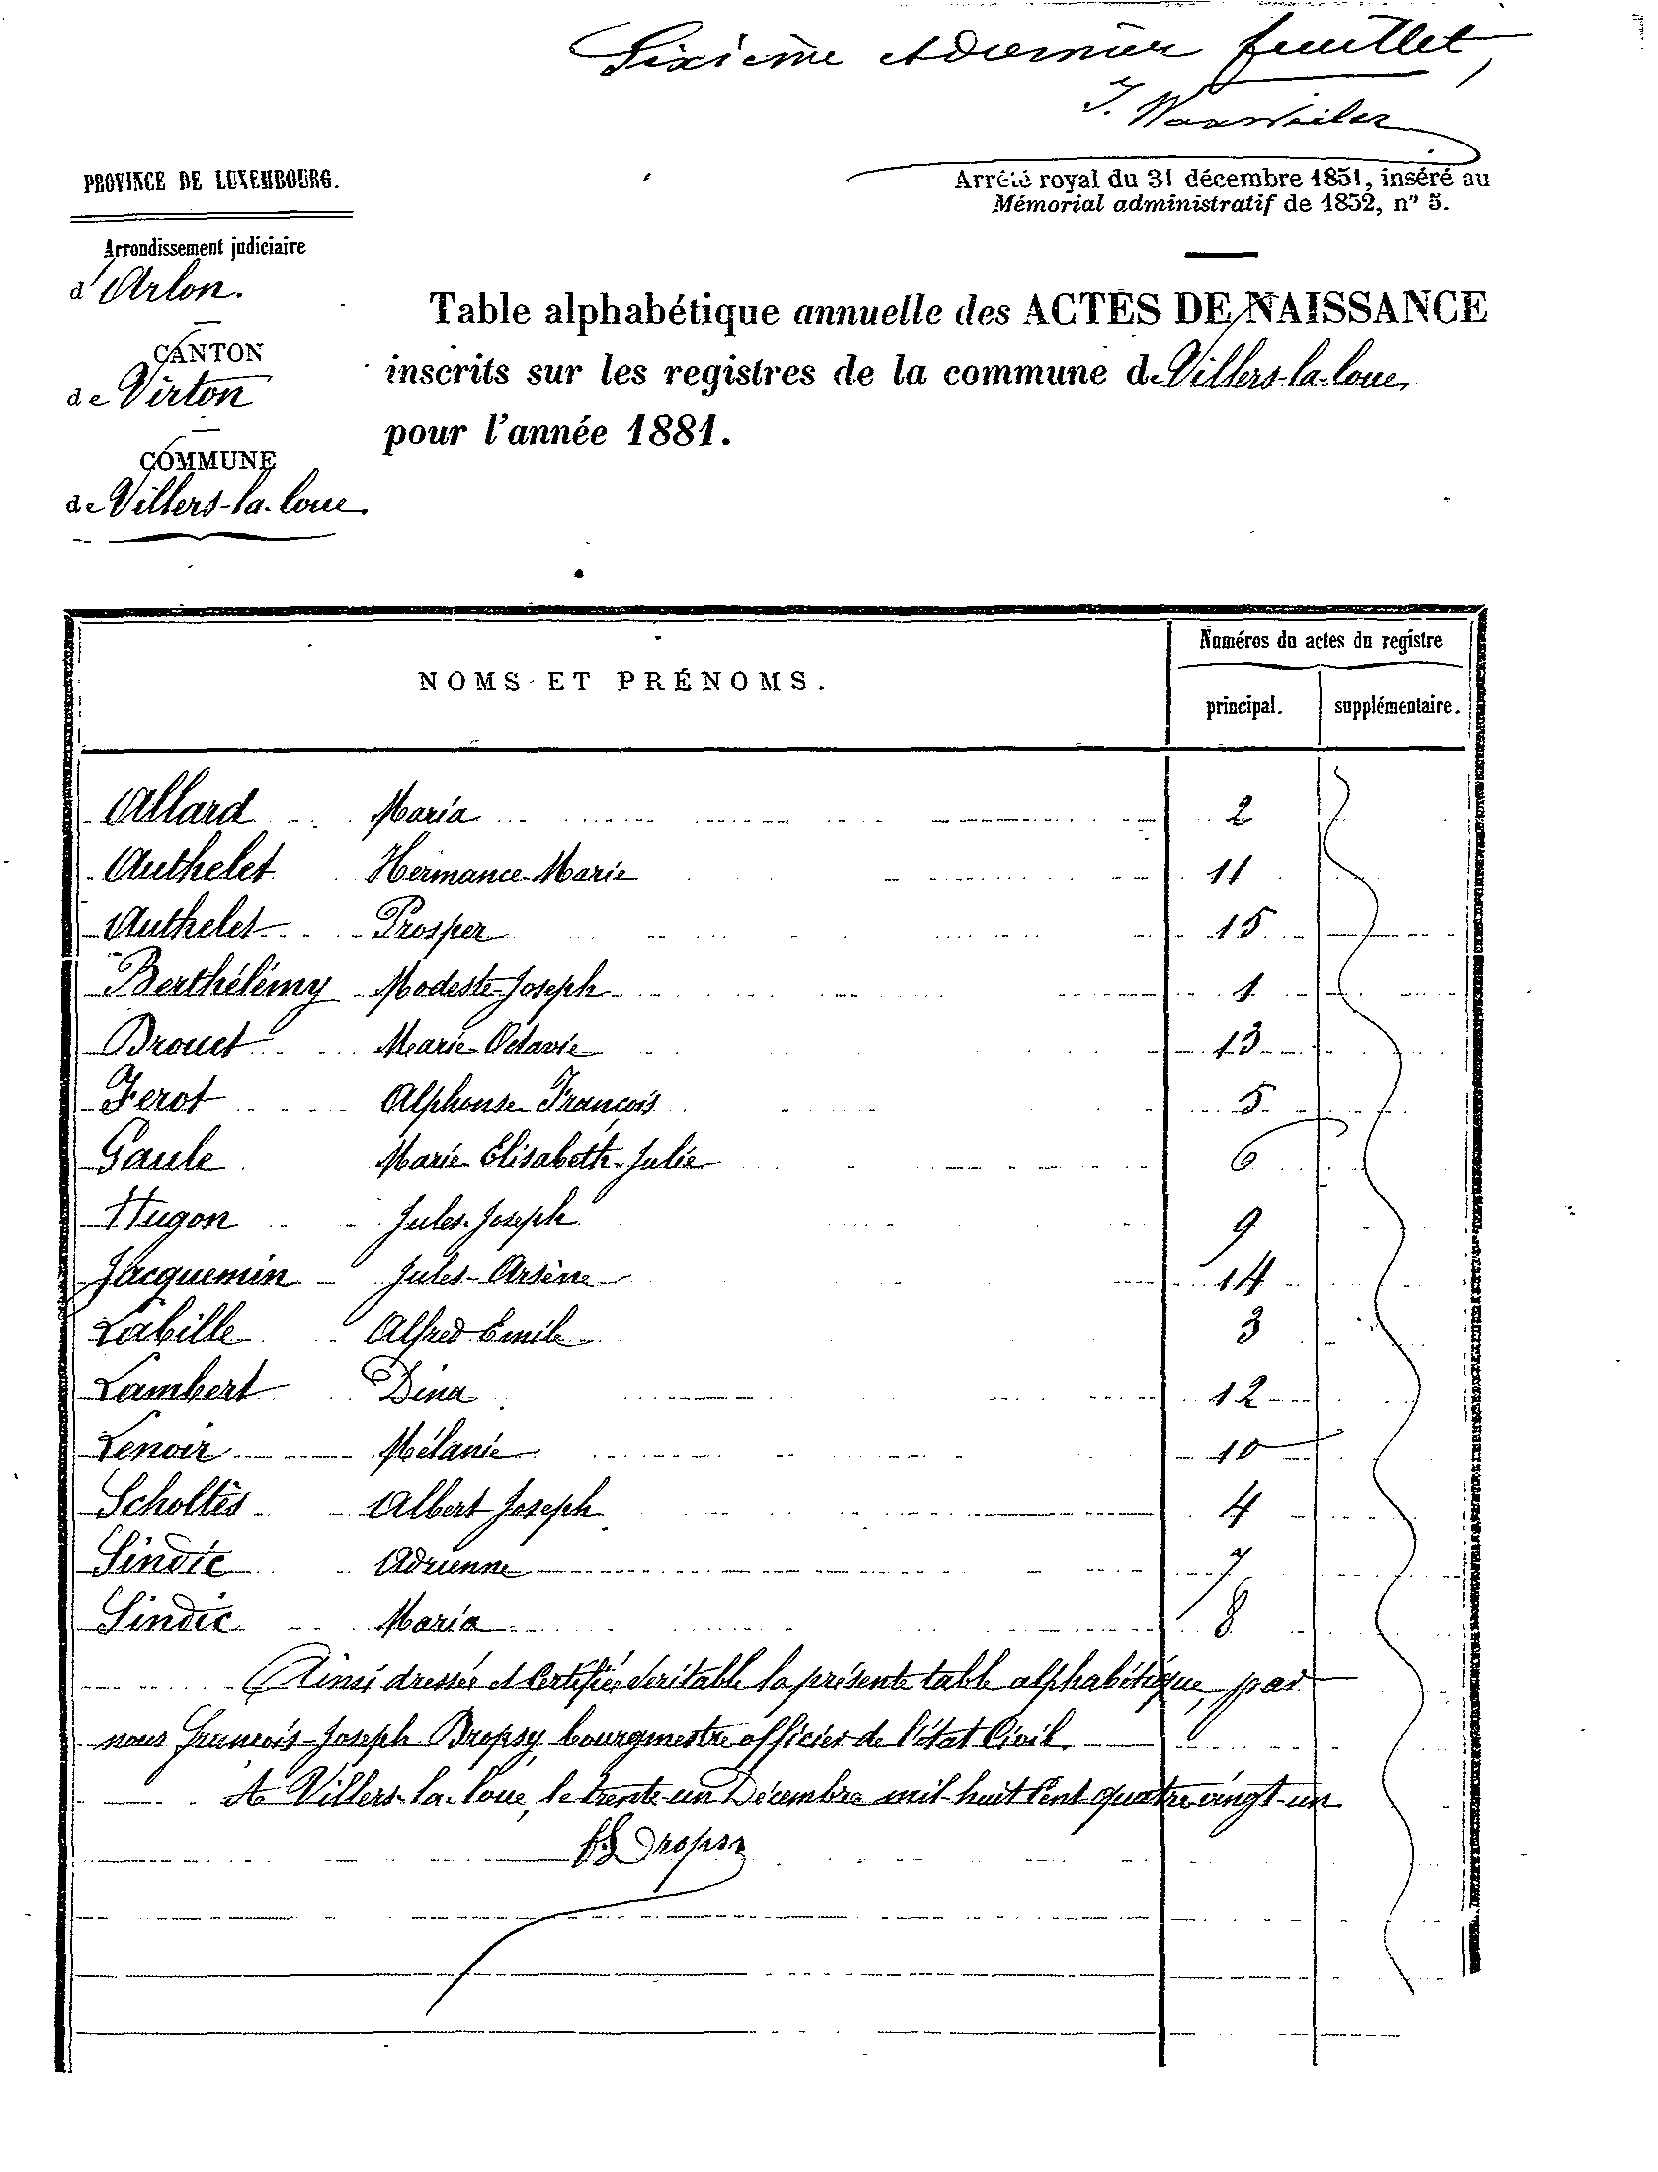 Sixième et dernier feuillet,
J. Waxweiler
PROVINCE DE LUXEMBOURG.
Arrêté royal du 31 décembre 1851, inséré au
Mémorial administratif de 1852, n° 5.
Arrondissement judiciaire
d'Arlon.
CANTON
de Virton
COMMUNE
de Villers-la-loue.
Table alphabétique annuelle des ACTES DE NAISSANCE
inscrits sur les registres de la commune de Villers-la-loue,
pour l'année 1881.
NOMS ET PRÉNOMS.
Numéros du actes du registre
principal. supplémentaire.
Allard Maria 2
Authelet Hermance-Marie 11
Authelet Prosper 15
Berthélémy Modeste-Joseph 1
Brouet Marie-Octavie 13
Ferot Alphonse-François 5
Gaule Marie-Elisabeth-Julie 6
Hugon Jules-Joseph 9
Jacquemin Jules-Arsène 14
Labille Alfred-Emile 3
Lambert Dina 12
Lenoir Mélanie 10
Scholtès Albert Joseph 4
Sindic Adrienne 7
Sindic Maria 8
Ainsi dressée et certifiée véritable la présente table alphabétique, par
nous François-Joseph Dropsy, bourgmestre officier de l'état Civil.
A Villers-la-loue, le trente-un Décembre mil-huit Cent quatre-vingt-un
F J Dropsy